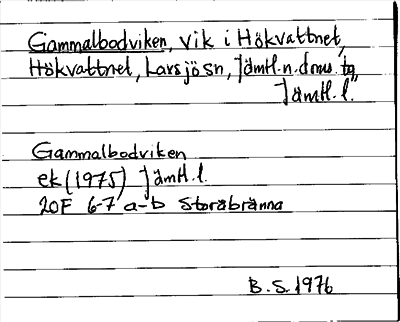 Gammalbodviken, vik i Hökvattnet,
Hökvattnet, Larsjö sn, Jämtl. n. dms. tg,
Jämtl. l.
Gammalbodviken
ek (1975) Jämtl. l.
20F 6-7 a-b Storåbränna
B. S. 1976